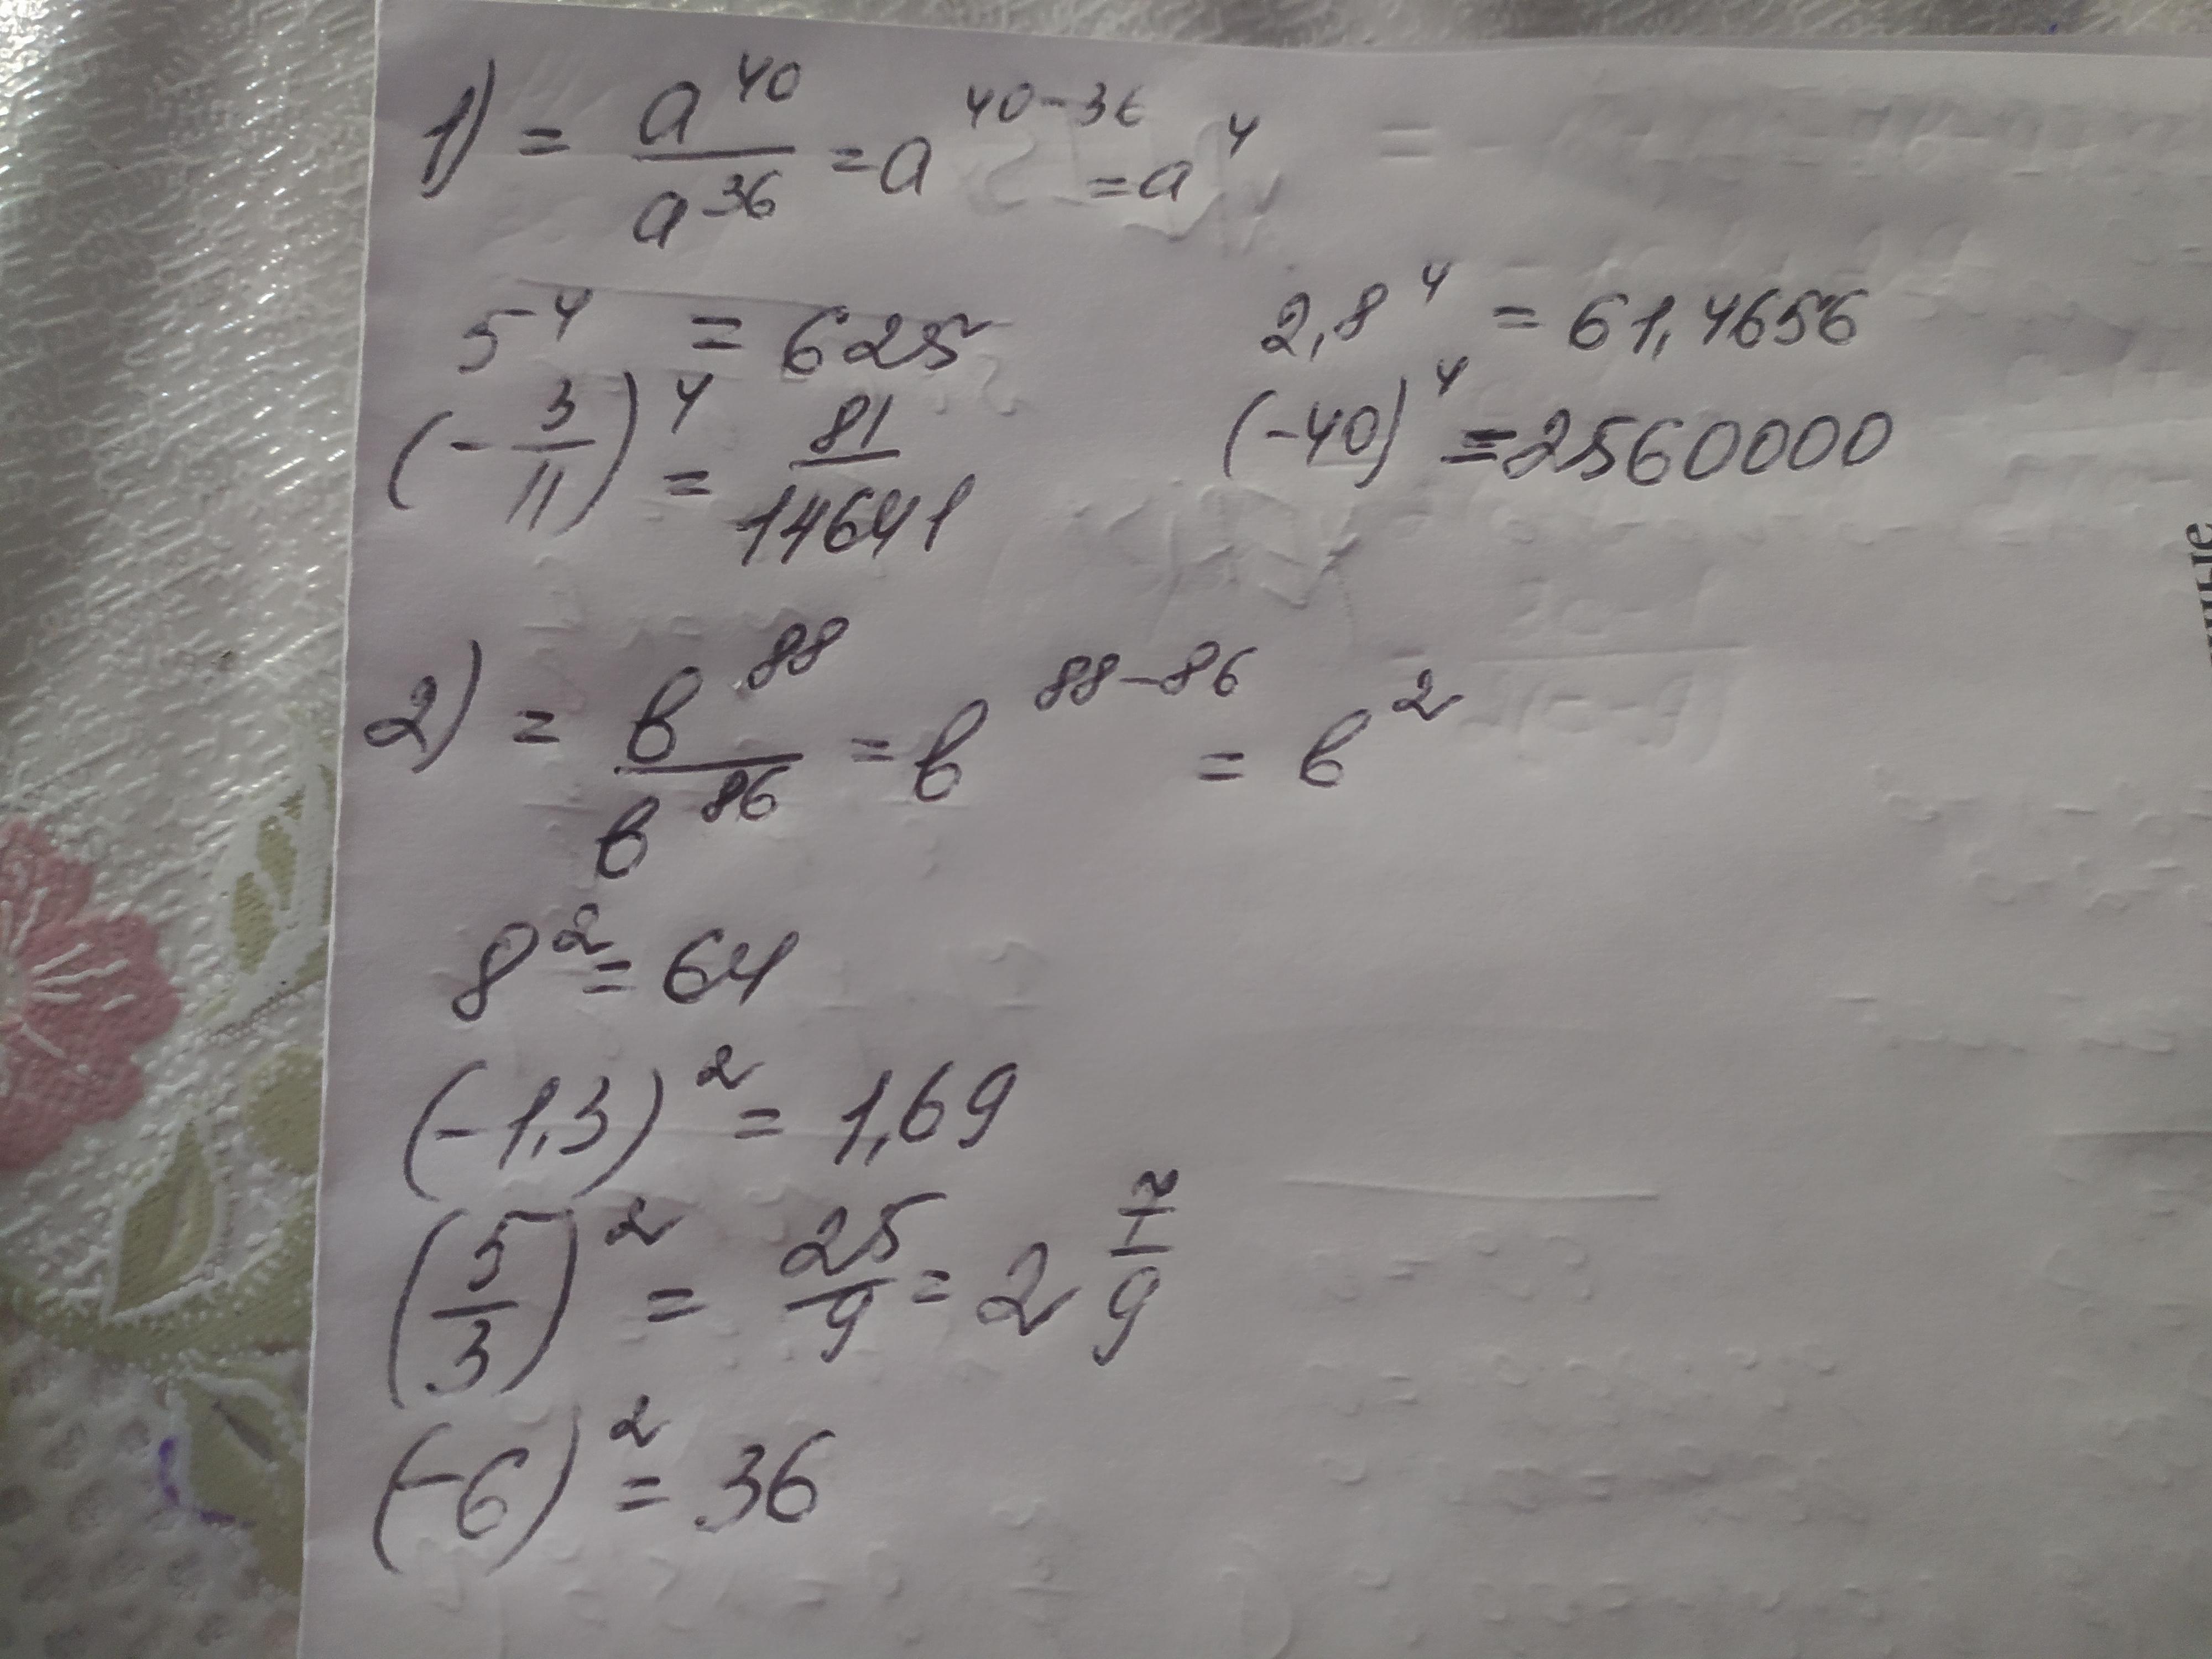 1) = a^40/a^36 = a^40-36 = a^4
5^4 = 625
2,8^4 = 61,4656
(-3/11)^4 = 81/14641
(-40)^4 = 2560000
2) = в^88/в^86 = в^88-86 = в^2
8^2 = 64
(-1,3)^2 = 1,69
(5/3)^2 = 25/9 = 2 7/9
(-6)^2 = 36